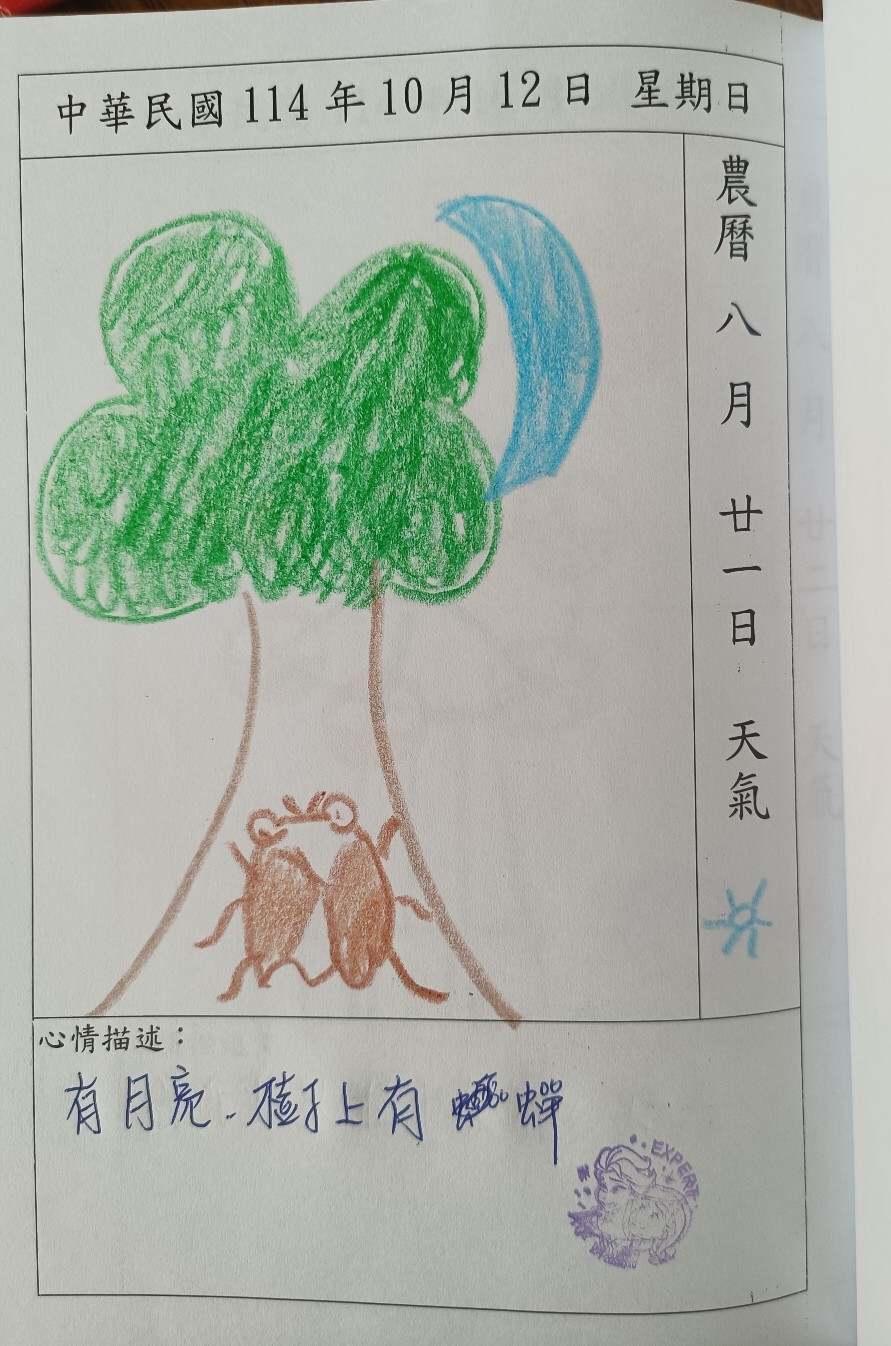 中華民國 114 年 10 月 12 日 星期日
農曆 八月 廿一日 天氣
心情描述：
有月亮.樹上有 蟬
EXPERT